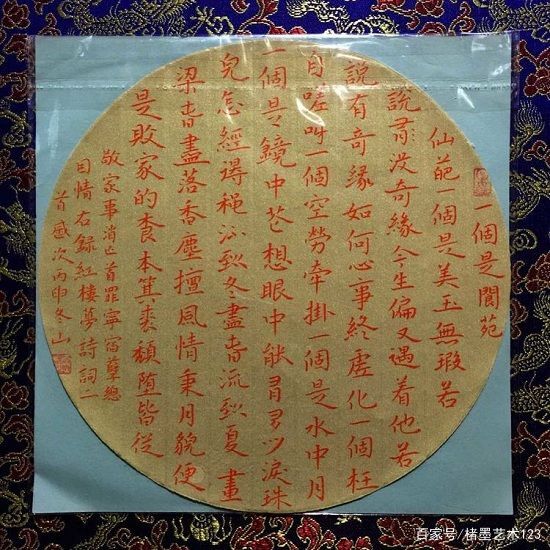 一個是閬苑
仙葩一個是美玉無瑕若
說沒奇緣今生偏又遇着他若
說有奇緣如何心事終虛化一個枉
自嗟呀一個空勞牽掛一個是水中月
一個是鏡中花想眼中能有多少淚珠
兒怎經得秋流到冬盡春流到夏畫
梁春盡落香塵擅風情秉月貌便
是敗家的根本箕裘頹墮皆從
敬家事消亡首罪寧宿孽總
因情右錄紅樓夢詩詞二
首歲次丙申冬山
百家号/楮墨艺术123